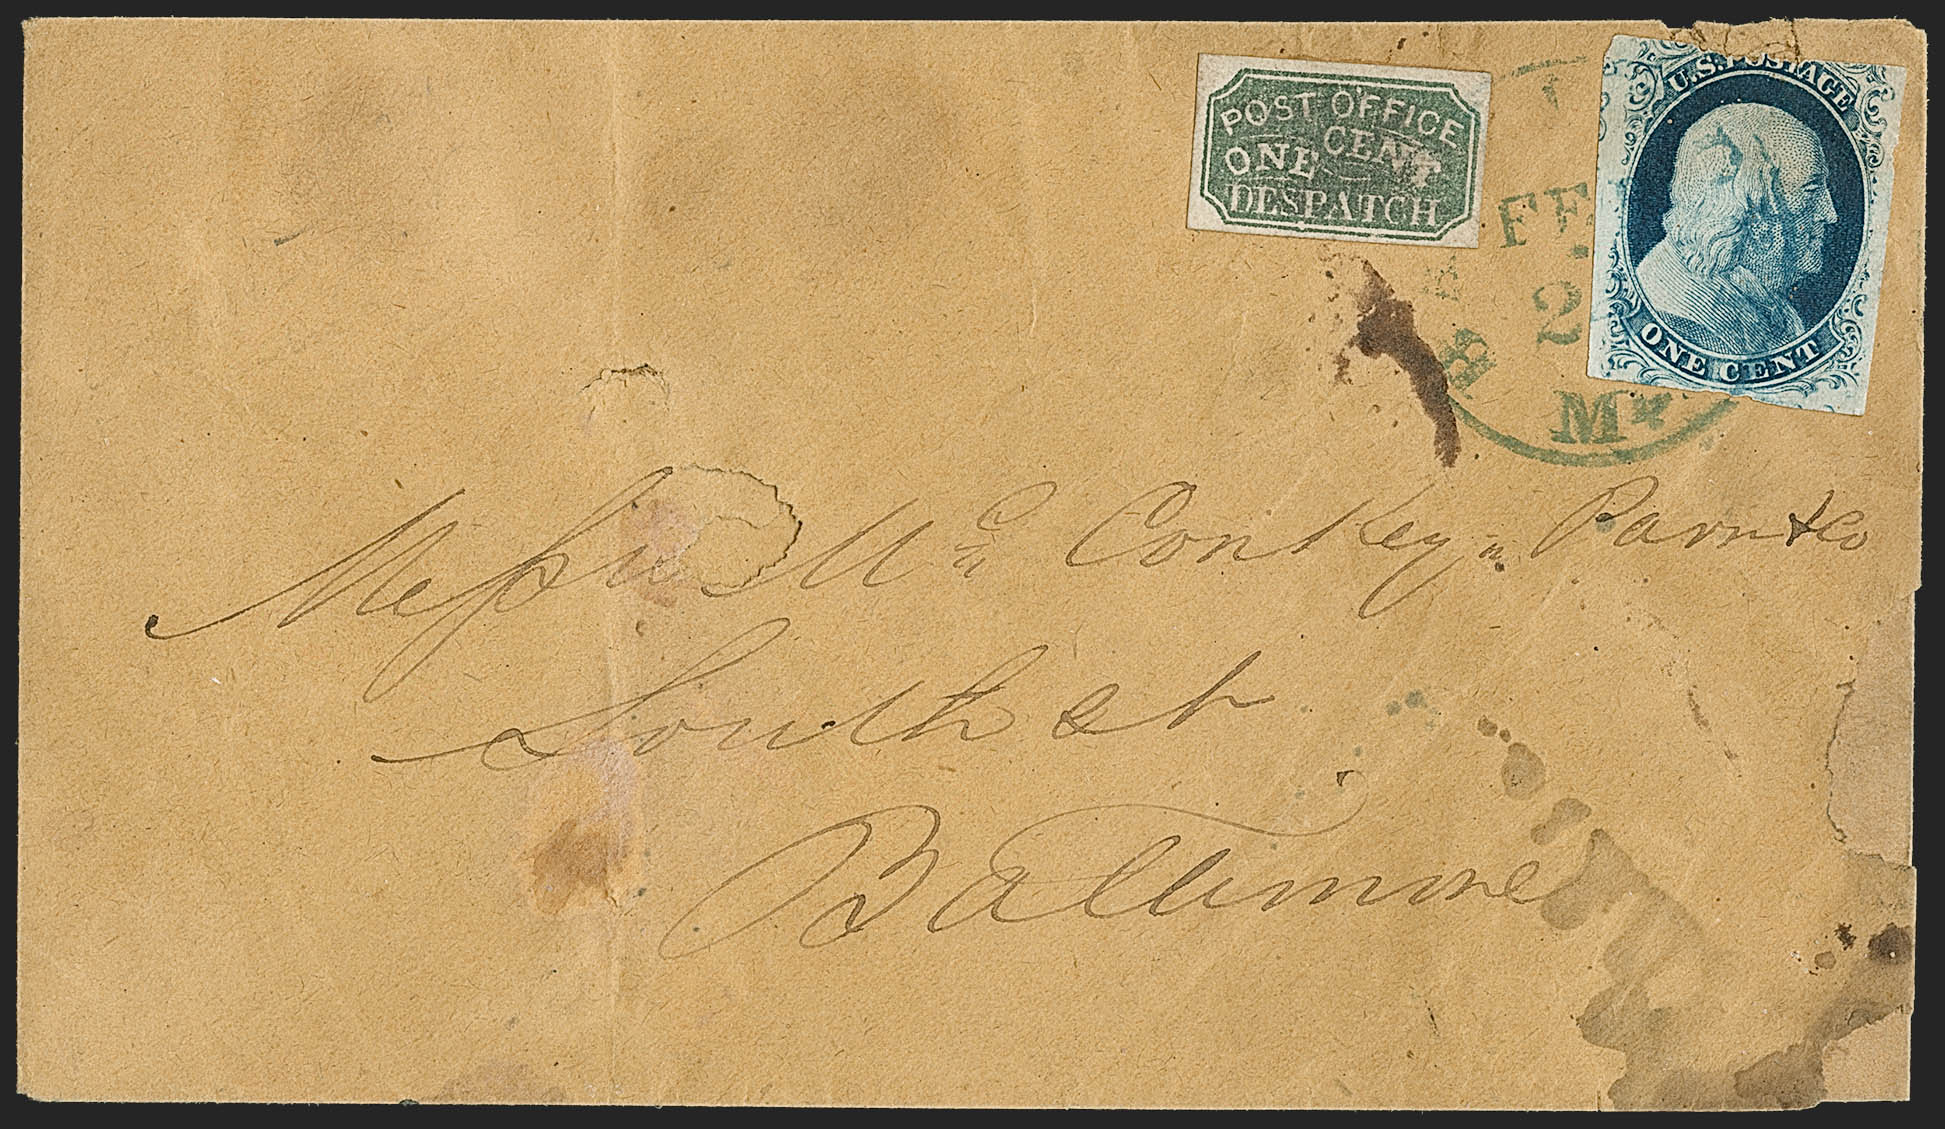 POST OFFICE
ONE CENT
DESPATCH
U.S. POSTAGE
ONE CENT
FE
2
B
M
Messrs Mc Conkey Parr & Co
South st
Baltimore